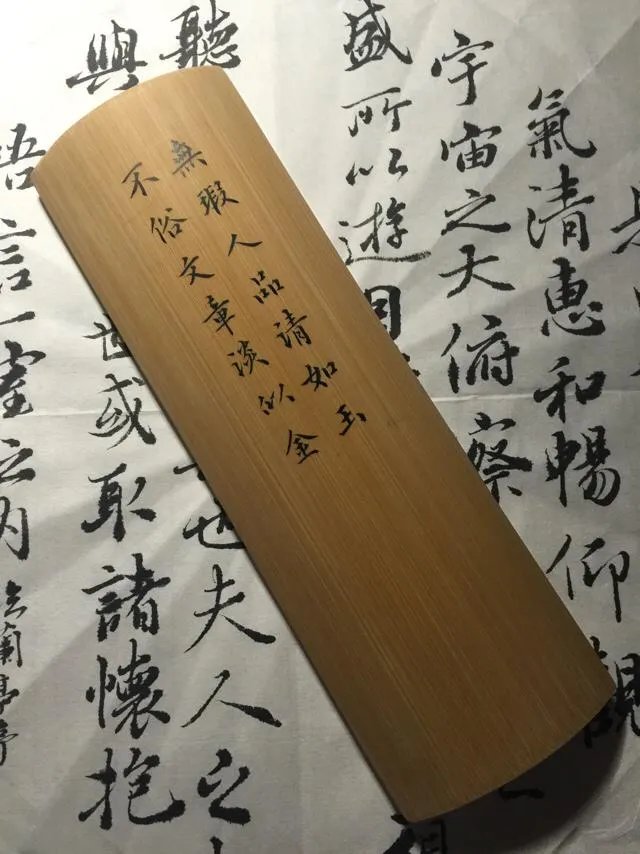 無瑕人品清如玉
不俗文章淡似金
氣清惠和暢仰觀
宇宙之大俯察
盛所以遊目
聽
也夫人之
與
世或取諸懷抱
悟言一室之内
蘭亭序